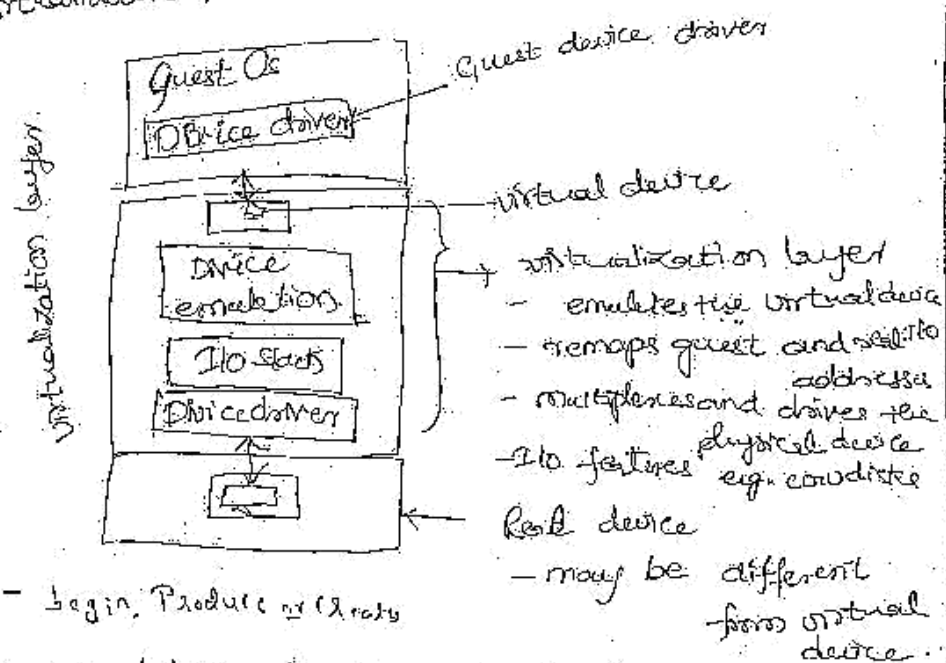 Guest Os
Guest device driver
DBvice driver
virtualization layer.
virtual device
Dvice
emulation.
I/O Stack
Dvice driver
virtualization layer
- emulates the virtual device
- remaps guest and real I/O
addresses
- multiplexes and drives the
physical device
- I/O features eg. cow disks
Real device
- may be different
from virtual
device..
- begin, Produce or Create